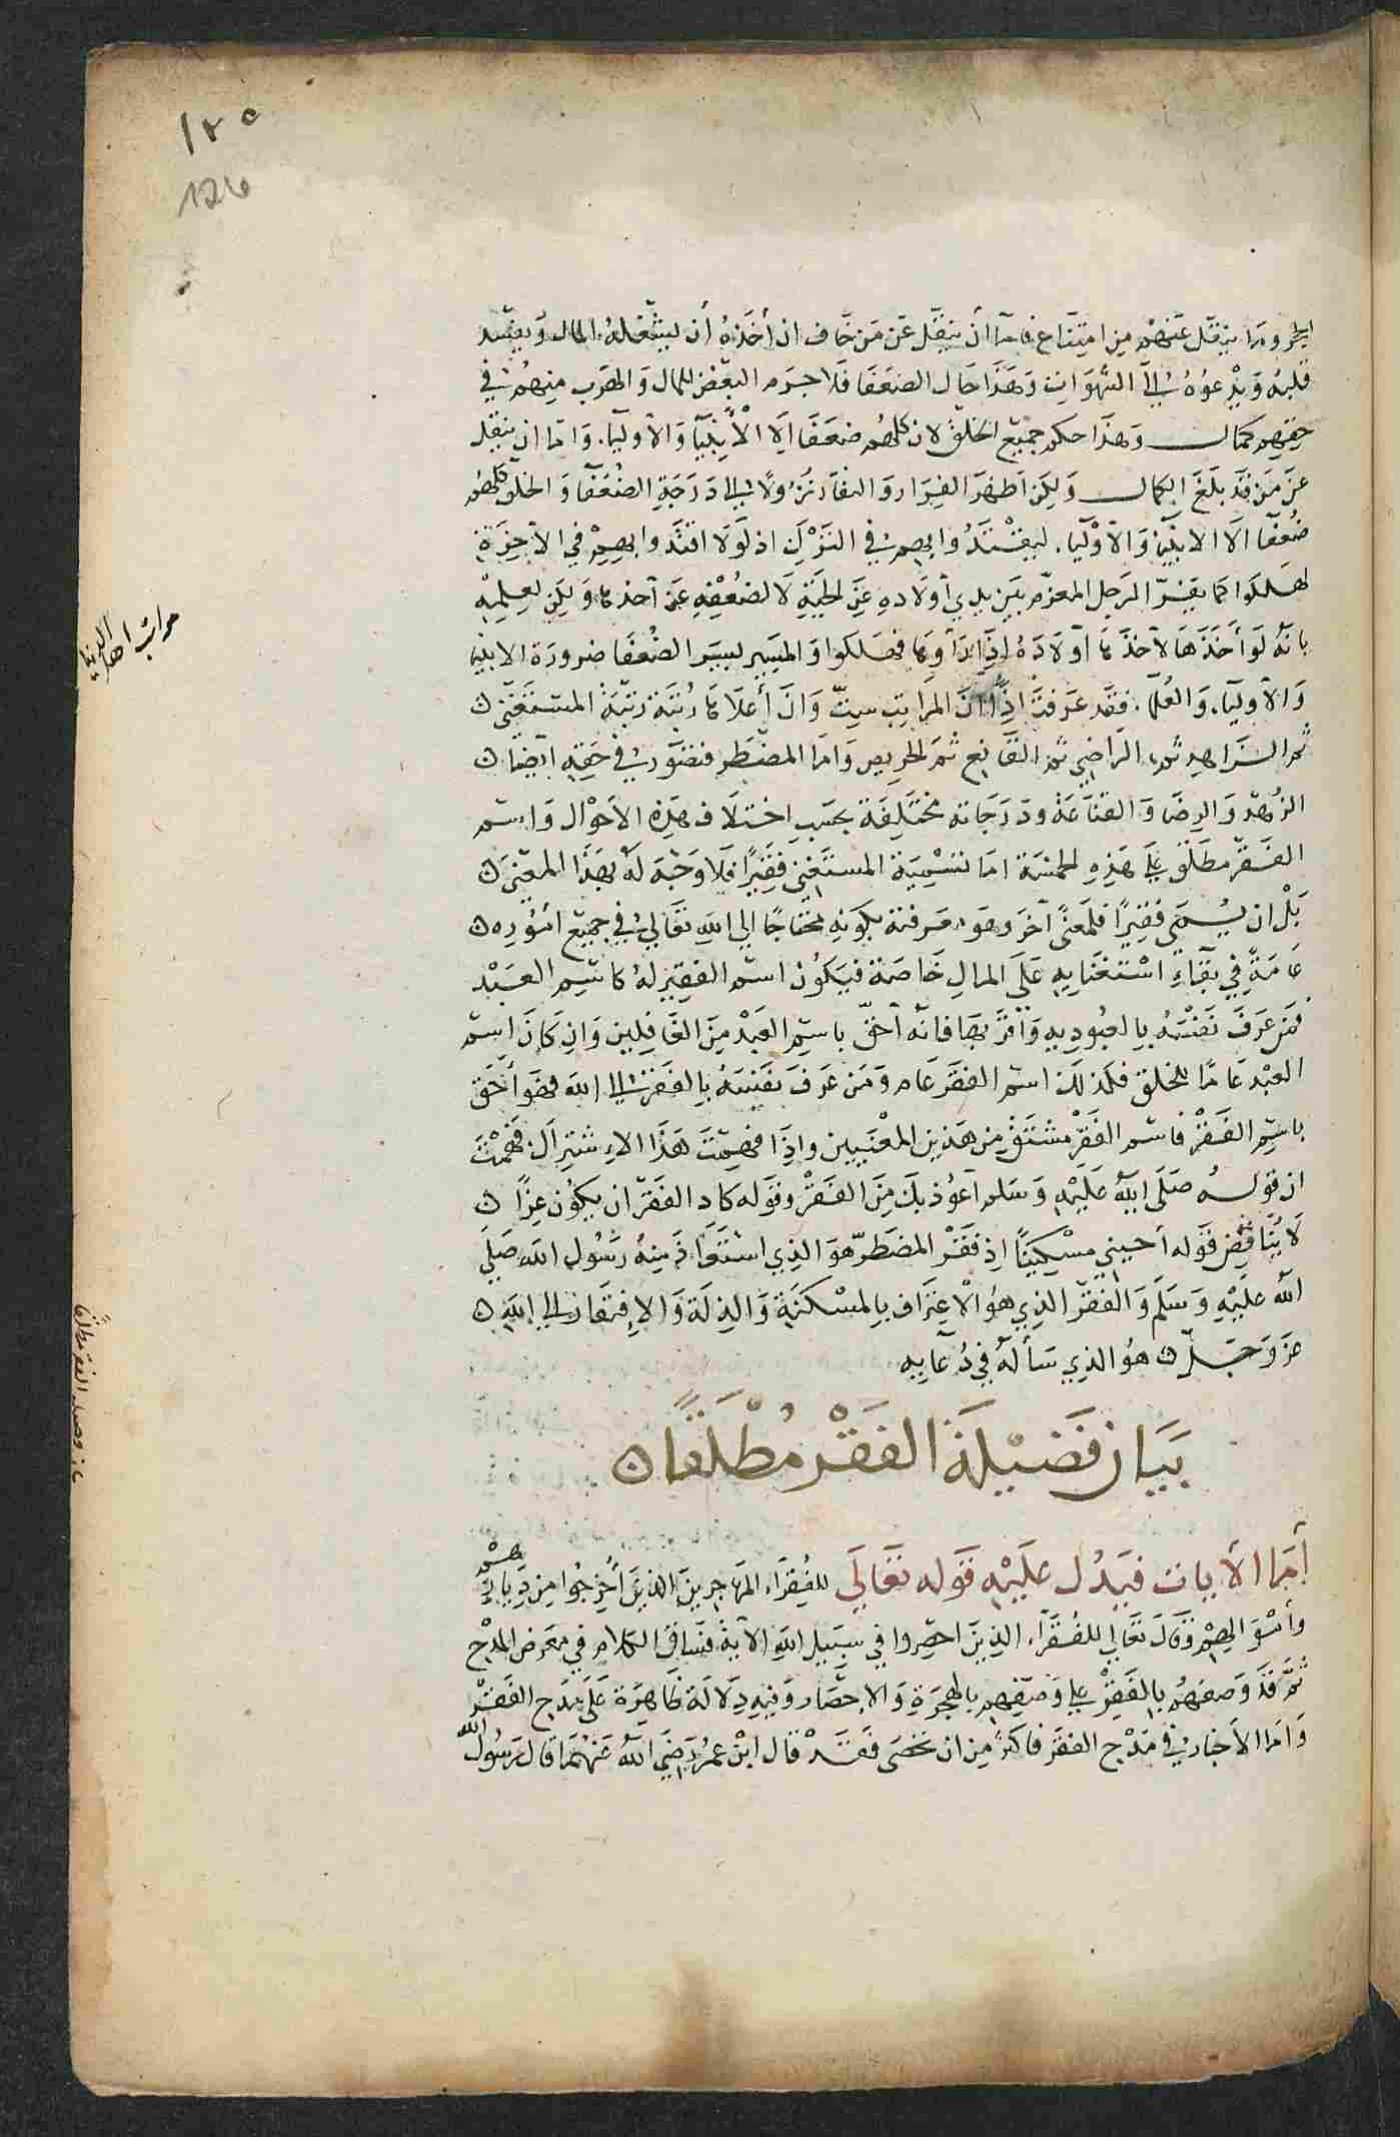 ١٢٥
126
اليه وما ينقل عنهم من امتناع فاما أن ينقل عن من خاف ان أخذه أن يشغله المال ويفسد
قلبه ويدعوه إلى الشهوات وهذا حال الضعفا فلا جرم البغض للمال والهرب منهم في
حقهم كمال وهذا حكم جميع الخلق لان كلهم ضعفا الا الأنبيا والأوليا. واما ان ينقل
عن من قد بلغ الكمال ولكن اظهر الفرار والنفار نزولا الى درجة الضعفا والخلق كلهم
ضعفا الا الانبيا والأوليا. ليقتدوا بهم في الترك اذ لو لا اقتدوا بهم في الأخزة
لهلكوا كما يفر الرجل المعزم بين يدي أولاده عن الحية لا لضعفه عن أخذها ولكن لعلمه
بانه لو أخذها لأخذها أولاده إذا رأوها فهلكوا والسير بسير الضعفا ضرورة الانبيا
والأوليا. والعلما. فقد عرفت إذا ان المراتب ست وان أعلاها رتبة رتبة المستغني ن
ثم الزاهد ثم الراضي ثم القانع ثم الحريص واما المضطر فتصور في حقه أيضا ن
الزهد والرضا والقناعة ودرجاته مختلفة بحسب اختلاف هذه الاحوال واسم
الفقر مطلق على هذه الخمسة اما تسمية المستغني فقيرا فلا وجه له بهذا المعنى ن
بل ان يسمى فقيرا فلمعنى آخر وهو معرفته بكونه محتاجا إلى الله تعالى في جميع أموره ن
عامة في بقاء استغنايه على المال خاصة فيكون اسم الفقير له كاسم العبد
فمن عرف نفسه بالعبوديه وأقر بها فانه أحق باسم العبد من الغافلين وان كان اسم
العبد عاما للخلق فكذلك اسم الفقر عام ومن عرف نفسه بالفقر الى الله فهو أحق
باسم الفقر فاسم الفقر مشتق من هذين المعنيين وإذا فهمت هذا الاشتراك فهمت
ان قوله صلى الله عليه وسلم أعوذ بك من الفقر وقوله كاد الفقر ان يكون عزا ن
لا يناقض قوله أحيني مسكينا اذ فقر المضطر هو الذي استعاذ منه رسول الله صلى
الله عليه وسلم والفقر الذي هو الاعتراف بالمسكنة والذلة والافتقار الى الله ن
عز وجل ن هو الذي سأله في دعايه
بيان فضيلة الفقر مطلقا ن
أما الأيات فيدل عليه قوله تعالى للفقراء المهاجرين الذين أخرجوا من ديارهم
وأموالهم وقال تعالى للفقراء الذين احصروا في سبيل الله الآية فساق الكلام في معرض المدح
ثم قدم وصفهم بالفقر على وصفهم بالهجرة والاحصار وفيه دلالة ظاهرة على مدح الفقر
واما الأخبار في مدح الفقر فاكثر من ان تحصى فقد قال ابن عمر رضي الله عنهما قال رسول الله
مراتب اهل الدنيا